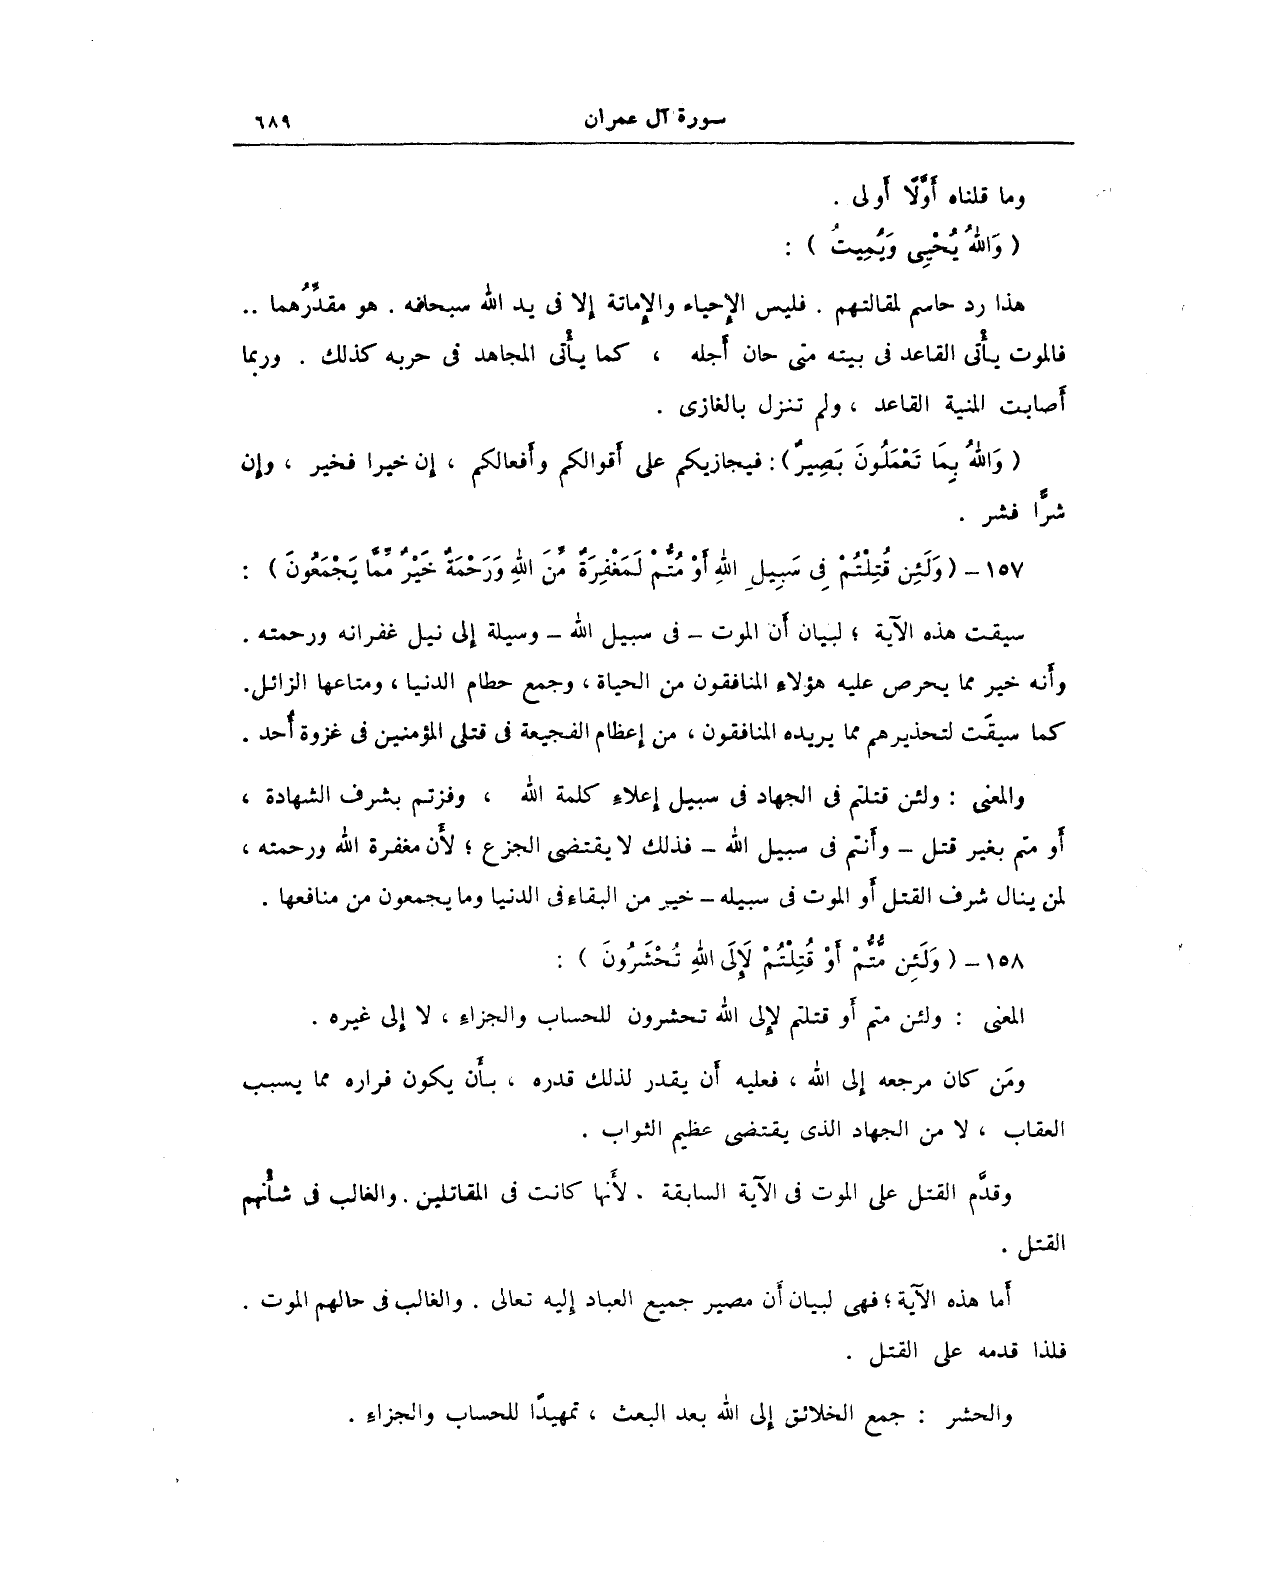 سورة آل عمران ٦٨٩
وما قلناه أَوَّلًا أَولى .
( وَاللهُ يُحْيِى وَيُمِيتُ ) :
هذا رد حاسم لمقالتهم . فليس الإِحياء والإِماتة إلا فى يد الله سبحانه . هو مقدِّرُهما ..
فالموت يأْتى القاعد فى بيته متى حان أَجله ، كما يأْتى المجاهد فى حربه كذلك . وربما
أَصابت المنية القاعد ، ولم تنزل بالغازى .
( وَاللهُ بِمَا تَعْمَلُونَ بَصِيرٌ ) : فيجازيكم على أَقوالكم وأَفعالكم ، إن خيرا فخير ، وإن
شرًّا فشر .
١٥٧ - ( وَلَئِن قُتِلْتُمْ فِى سَبِيلِ اللهِ أَوْ مُتُّمْ لَمَغْفِرَةٌ مِّنَ اللهِ وَرَحْمَةٌ خَيْرٌ مِّمَّا يَجْمَعُونَ ) :
سيقت هذه الآية ؛ لبيان أَن الموت - فى سبيل الله - وسيلة إلى نيل غفرانه ورحمته .
وأَنه خير مما يحرص عليه هؤلاء المنافقون من الحياة ، وجمع حطام الدنيا ، ومتاعها الزائل.
كما سيقَت لتحذيرهم مما يريده المنافقون ، من إعظام الفجيعة فى قتلى المؤمنين فى غزوة أُحد .
والمعنى : ولئن قتلتم فى الجهاد فى سبيل إعلاء كلمة الله ، وفزتم بشرف الشهادة ،
أَو متم بغير قتل - وأَنتم فى سبيل الله - فذلك لا يقتضى الجزع ؛ لأَن مغفرة الله ورحمته ،
لمن ينال شرف القتل أَو الموت فى سبيله - خير من البقاء فى الدنيا وما يجمعون من منافعها .
١٥٨ - ( وَلَئِن مُّتُّمْ أَوْ قُتِلْتُمْ لَإِلَى اللهِ تُحْشَرُونَ ) :
المعنى : ولئن متم أَو قتلتم لإِلى الله تحشرون للحساب والجزاء ، لا إلى غيره .
ومَن كان مرجعه إلى الله ، فعليه أَن يقدر لذلك قدره ، بأَن يكون فراره مما يسبب
العقاب ، لا من الجهاد الذى يقتضى عظيم الثواب .
وقدَّم القتل على الموت فى الآية السابقة . لأَنها كانت فى المقاتلين . والغالب فى شأْنهم
القتل .
أَما هذه الآية ؛ فهى لبيان أَن مصير جميع العباد إليه تعالى . والغالب فى حالهم الموت .
فلذا قدمه على القتل .
والحشر : جمع الخلائق إلى الله بعد البعث ، تمهيدًا للحساب والجزاء .